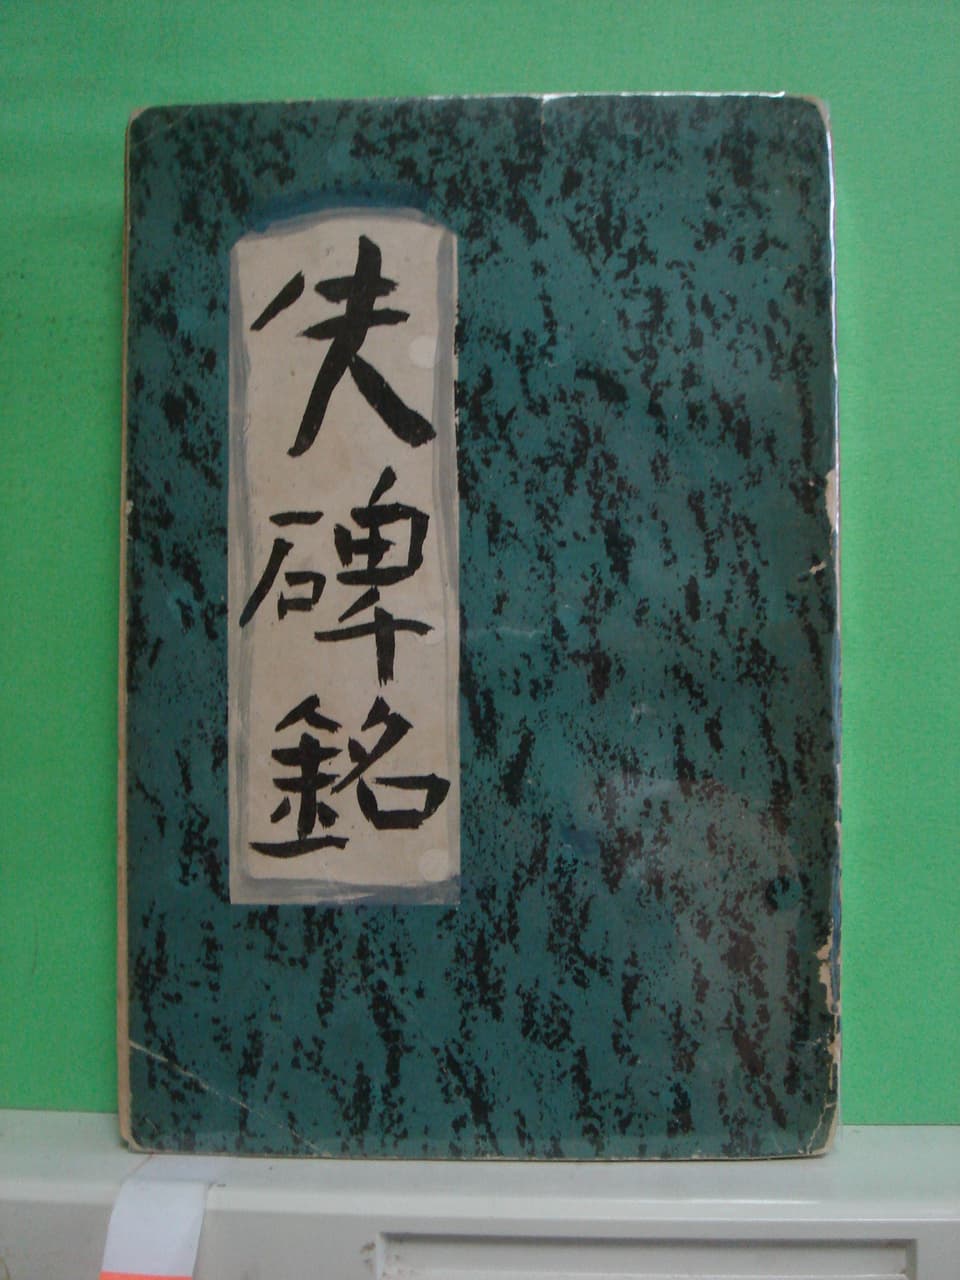 失碑銘